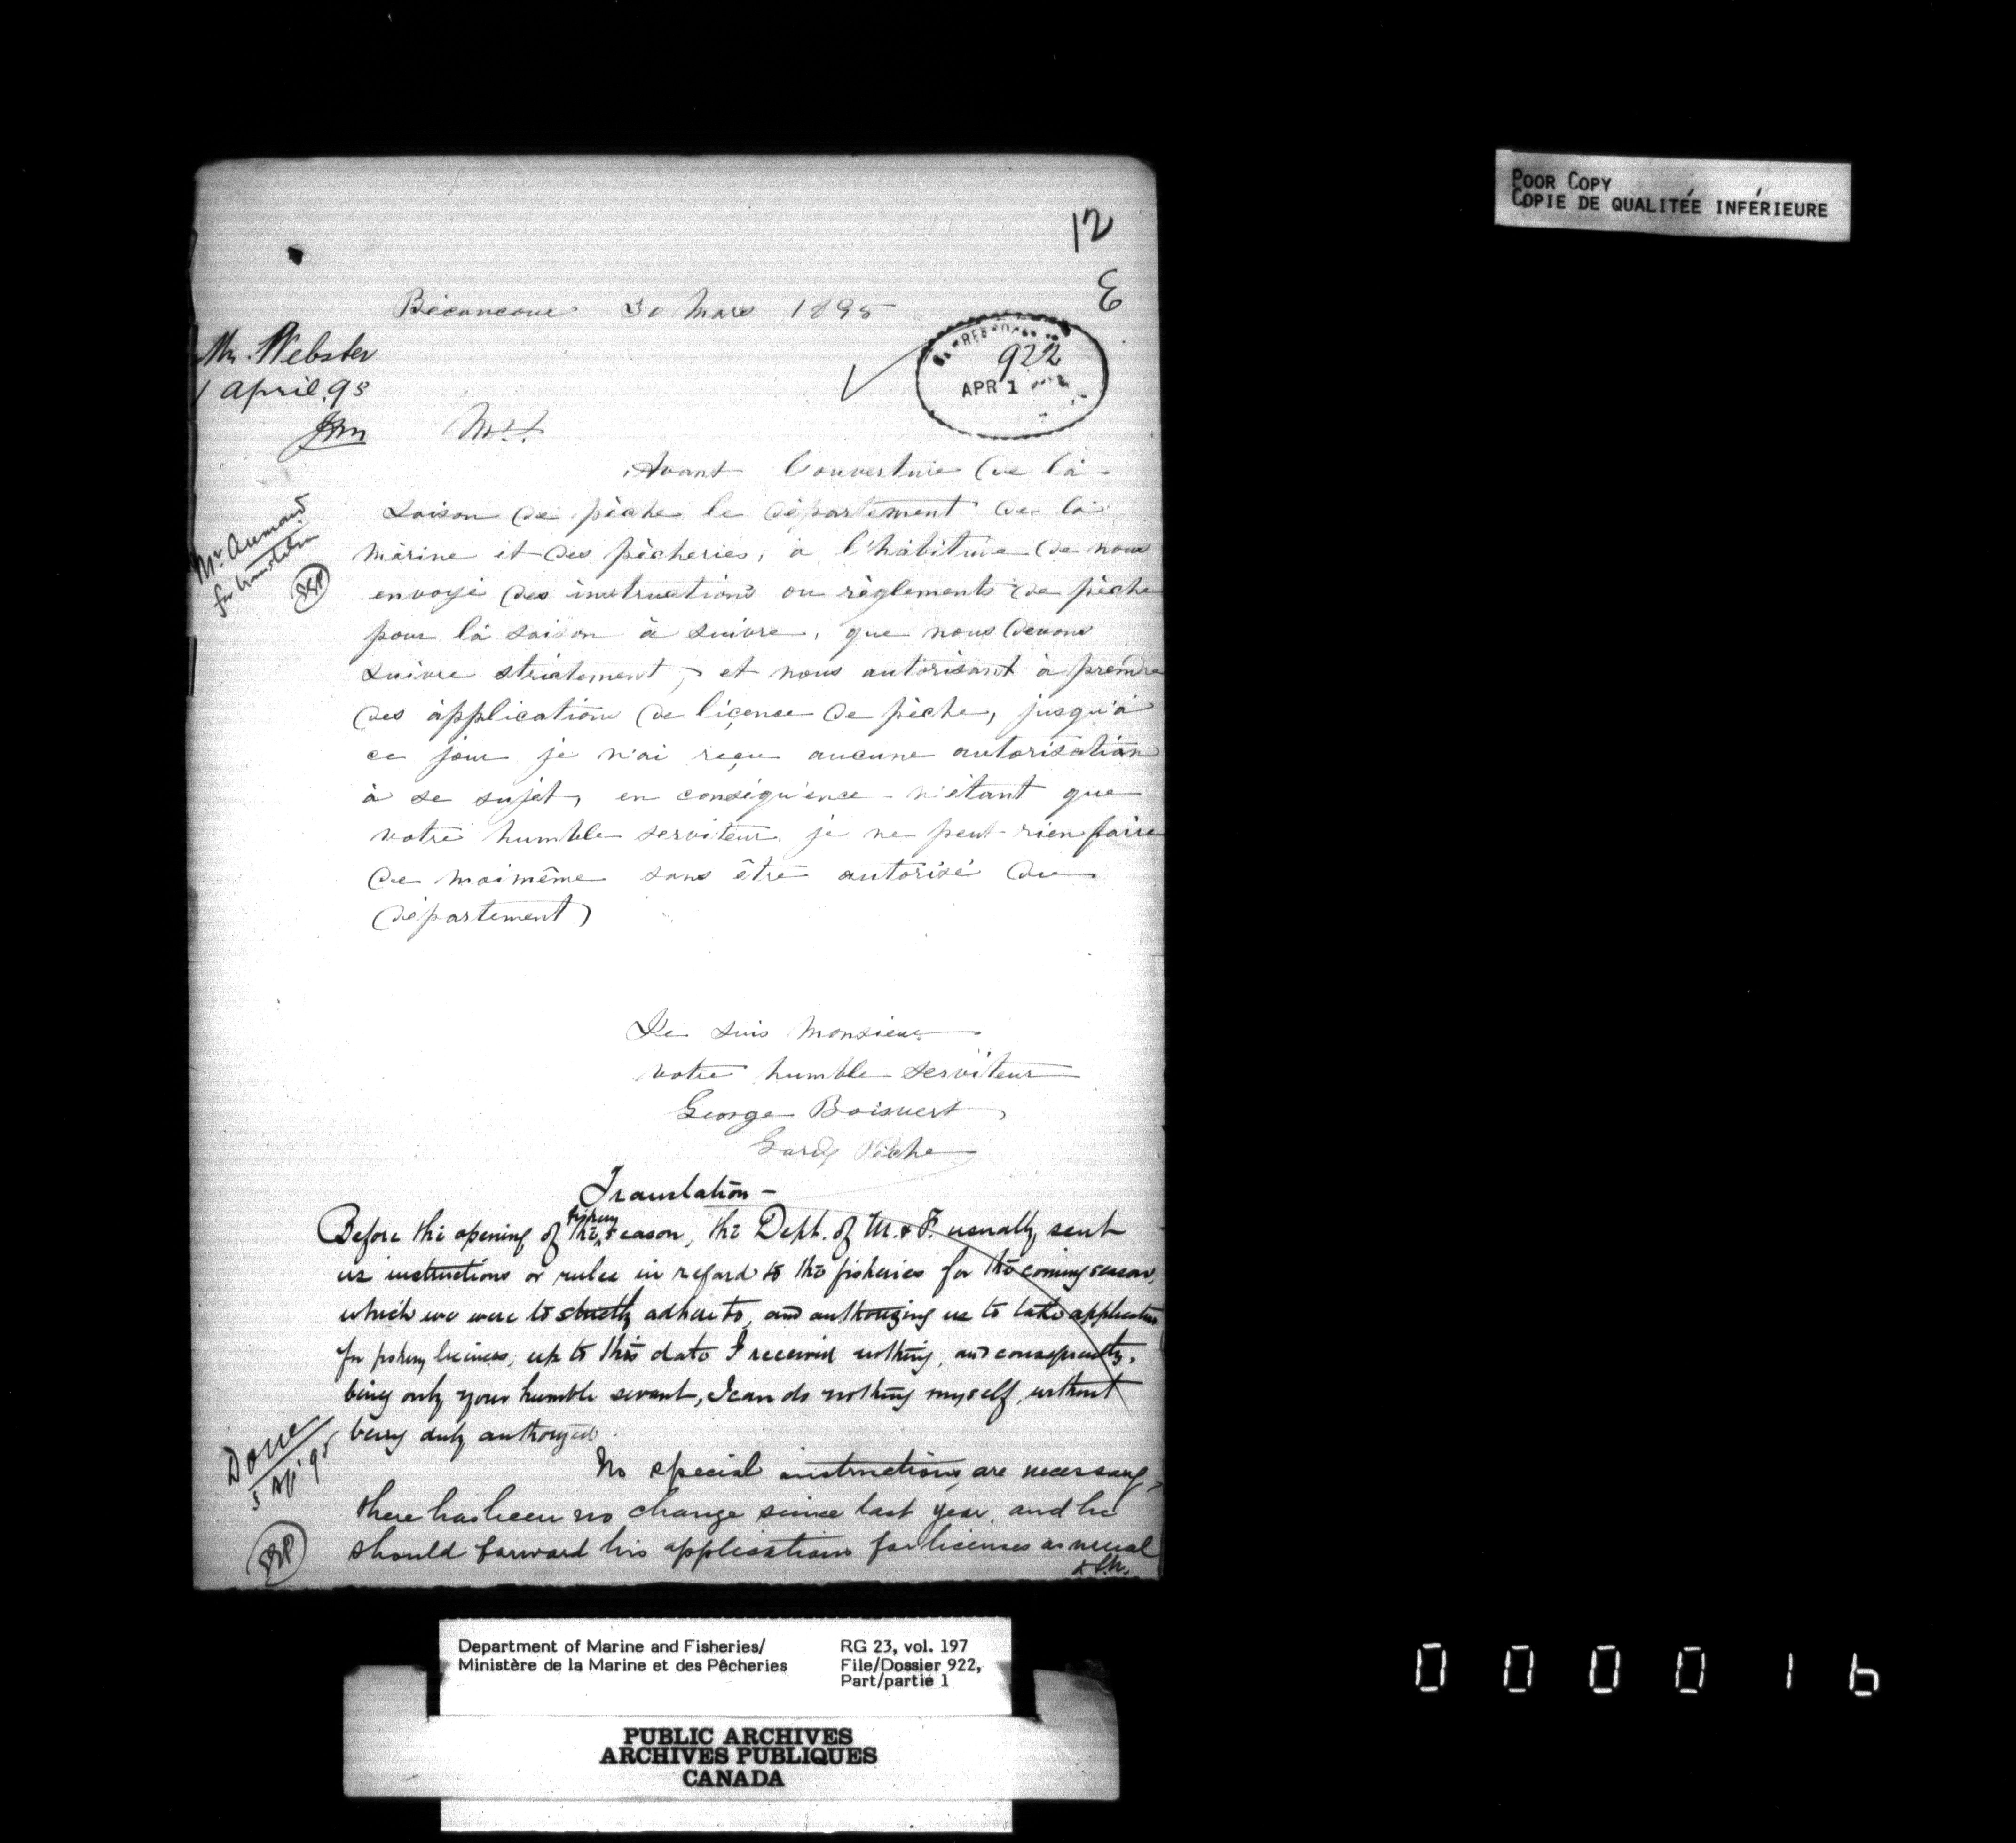 POOR COPY
COPIE DE QUALITÉE INFÉRIEURE
12
E
Bécancour 30 Mars 1895
Mr. Webster
1 April. 95
922
APR 1
Mr.
Avant l'ouverture de la
saison de pèche le département de la
marine et des pècheries, a l'habitude de nous
envoyé des instructions ou règlements de pèche
pour la saison à suivre, que nous devons
suivre strictement, et nous autorisant à prendre
des applications de liçence de pèche, jusqu'à
ce jour je n'ai reçu aucune autorisation
à se sujet, en conséquence n'étant que
votre humble serviteur je ne peut rien faire
de moimême sans être autorisé du
département
Mr Aumond
for translation
Je suis Monsieur
votre humble serviteur
George Boisvert
Garde Pèche
Translation -
Before the opening of the fishery season, the Dept. of M. & F. usually sent
us instructions or rules in regard to the fisheries for the coming season,
which we were to strictly adhere to, and authorizing us to take application
for fishery licenses; up to this date I received nothing, and consequently,
being only your humble servant, I can do nothing myself, without
being duly authorized.
Done
5 Apl 95
No special instructions are necessary,
there has been no change since last year, and he
should forward his applications for licenses as usual
Department of Marine and Fisheries/
Ministère de la Marine et des Pêcheries
RG 23, vol. 197
File/Dossier 922,
Part/partie 1
PUBLIC ARCHIVES
ARCHIVES PUBLIQUES
CANADA
000016